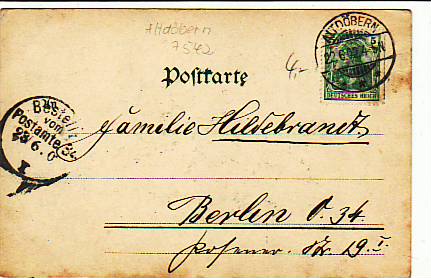 Altdöbern
7542
4,-
ALTDÖBERN
5
DEUTSCHES REICH
Postkarte
Bestellt
vom
Postamte 34
23 6. 0
Familie Hildebrandt
Berlin O. 34.
Posener Str. 29 I.